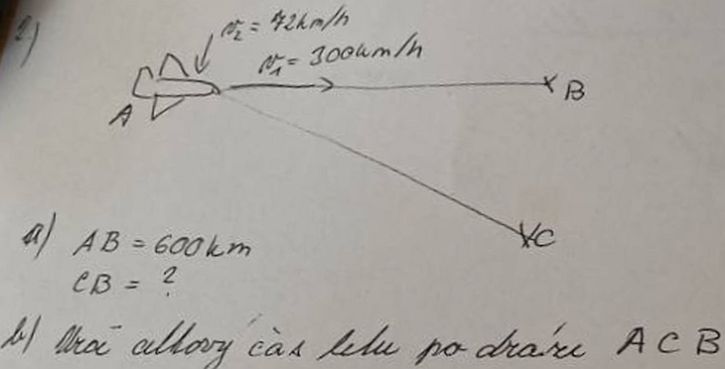 2)
v₂ = 72km/h
v₁ = 300km/h
A
B
C
a) AB = 600km
CB = ?
b) Urči celkový čas letu po dráze ACB